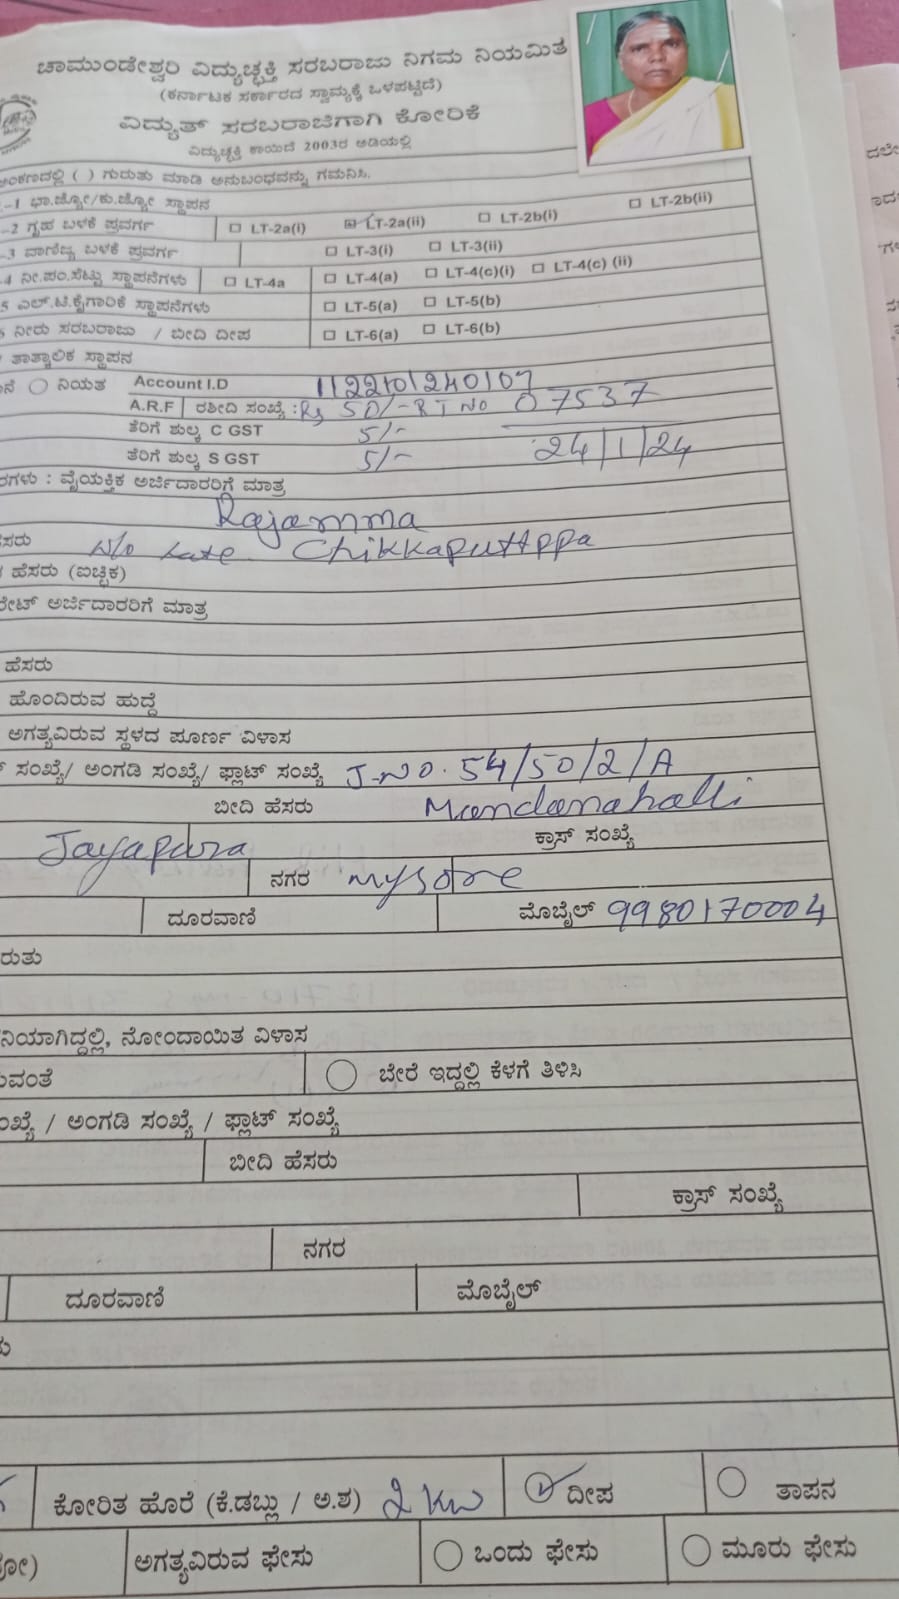 ಚಾಮುಂಡೇಶ್ವರಿ ವಿದ್ಯುಚ್ಛಕ್ತಿ ಸರಬರಾಜು ನಿಗಮ ನಿಯಮಿತ
(ಕರ್ನಾಟಕ ಸರ್ಕಾರದ ಸ್ವಾಮ್ಯಕ್ಕೆ ಒಳಪಟ್ಟಿದೆ)
ವಿದ್ಯುತ್ ಸರಬರಾಜಿಗಾಗಿ ಕೋರಿಕೆ
ವಿದ್ಯುಚ್ಛಕ್ತಿ ಕಾಯಿದೆ 2003ರ ಅಡಿಯಲ್ಲಿ
ಅಂಕಣದಲ್ಲಿ ( ) ಗುರುತು ಮಾಡಿ ಅನುಬಂಧವನ್ನು ಗಮನಿಸಿ.
-1 ಭಾ.ಜ್ಯೋ/ಕು.ಜ್ಯೋ ಸ್ಥಾಪನ
-2 ಗೃಹ ಬಳಕೆ ಪ್ರವರ್ಗ LT-2a(i) LT-2a(ii) LT-2b(i) LT-2b(ii)
-3 ವಾಣಿಜ್ಯ ಬಳಕೆ ಪ್ರವರ್ಗ LT-3(i) LT-3(ii)
-4 ನೀ.ಪಂ.ಸೆಟ್ಟು ಸ್ಥಾಪನೆಗಳು LT-4a LT-4(a) LT-4(c)(i) LT-4(c) (ii)
5 ಎಲ್.ಟಿ.ಕೈಗಾರಿಕೆ ಸ್ಥಾಪನೆಗಳು LT-5(a) LT-5(b)
6 ನೀರು ಸರಬರಾಜು / ಬೀದಿ ದೀಪ LT-6(a) LT-6(b)
ತಾತ್ಕಾಲಿಕ ಸ್ಥಾಪನ
ನಿಯತ Account I.D 1122101240107
A.R.F ರಶೀದಿ ಸಂಖ್ಯೆ : Rs 50/- RT No 07537
ತೆರಿಗೆ ಶುಲ್ಕ C GST 5/-
ತೆರಿಗೆ ಶುಲ್ಕ S GST 5/- 24/1/24
ರಗಳು : ವೈಯಕ್ತಿಕ ಅರ್ಜಿದಾರರಿಗೆ ಮಾತ್ರ
Rajamma
ಸರು W/o Late Chikkaputtppa
ಹೆಸರು (ಐಚ್ಛಿಕ)
ರೇಟ್ ಅರ್ಜಿದಾರರಿಗೆ ಮಾತ್ರ
ಹೆಸರು
ಹೊಂದಿರುವ ಹುದ್ದೆ
ಅಗತ್ಯವಿರುವ ಸ್ಥಳದ ಪೂರ್ಣ ವಿಳಾಸ
ಸಂಖ್ಯೆ/ ಅಂಗಡಿ ಸಂಖ್ಯೆ/ ಫ್ಲಾಟ್ ಸಂಖ್ಯೆ J-NO. 54/50/2/A
ಬೀದಿ ಹೆಸರು Mandanahalli
Jayapura ಕ್ರಾಸ್ ಸಂಖ್ಯೆ
ನಗರ mysore
ದೂರವಾಣಿ ಮೊಬೈಲ್ 9980170004
ರುತು
ನಿಯಾಗಿದ್ದಲ್ಲಿ, ನೋಂದಾಯಿತ ವಿಳಾಸ
ುವಂತೆ ಬೇರೆ ಇದ್ದಲ್ಲಿ ಕೆಳಗೆ ತಿಳಿಸಿ
ಂಖ್ಯೆ / ಅಂಗಡಿ ಸಂಖ್ಯೆ / ಫ್ಲಾಟ್ ಸಂಖ್ಯೆ
ಬೀದಿ ಹೆಸರು
ಕ್ರಾಸ್ ಸಂಖ್ಯೆ
ನಗರ
ದೂರವಾಣಿ ಮೊಬೈಲ್
ಕೋರಿತ ಹೊರೆ (ಕೆ.ಡಬ್ಲು / ಅ.ಶ) 2 kw ದೀಪ ತಾಪನ
ಅಗತ್ಯವಿರುವ ಫೇಸು ಒಂದು ಫೇಸು ಮೂರು ಫೇಸು